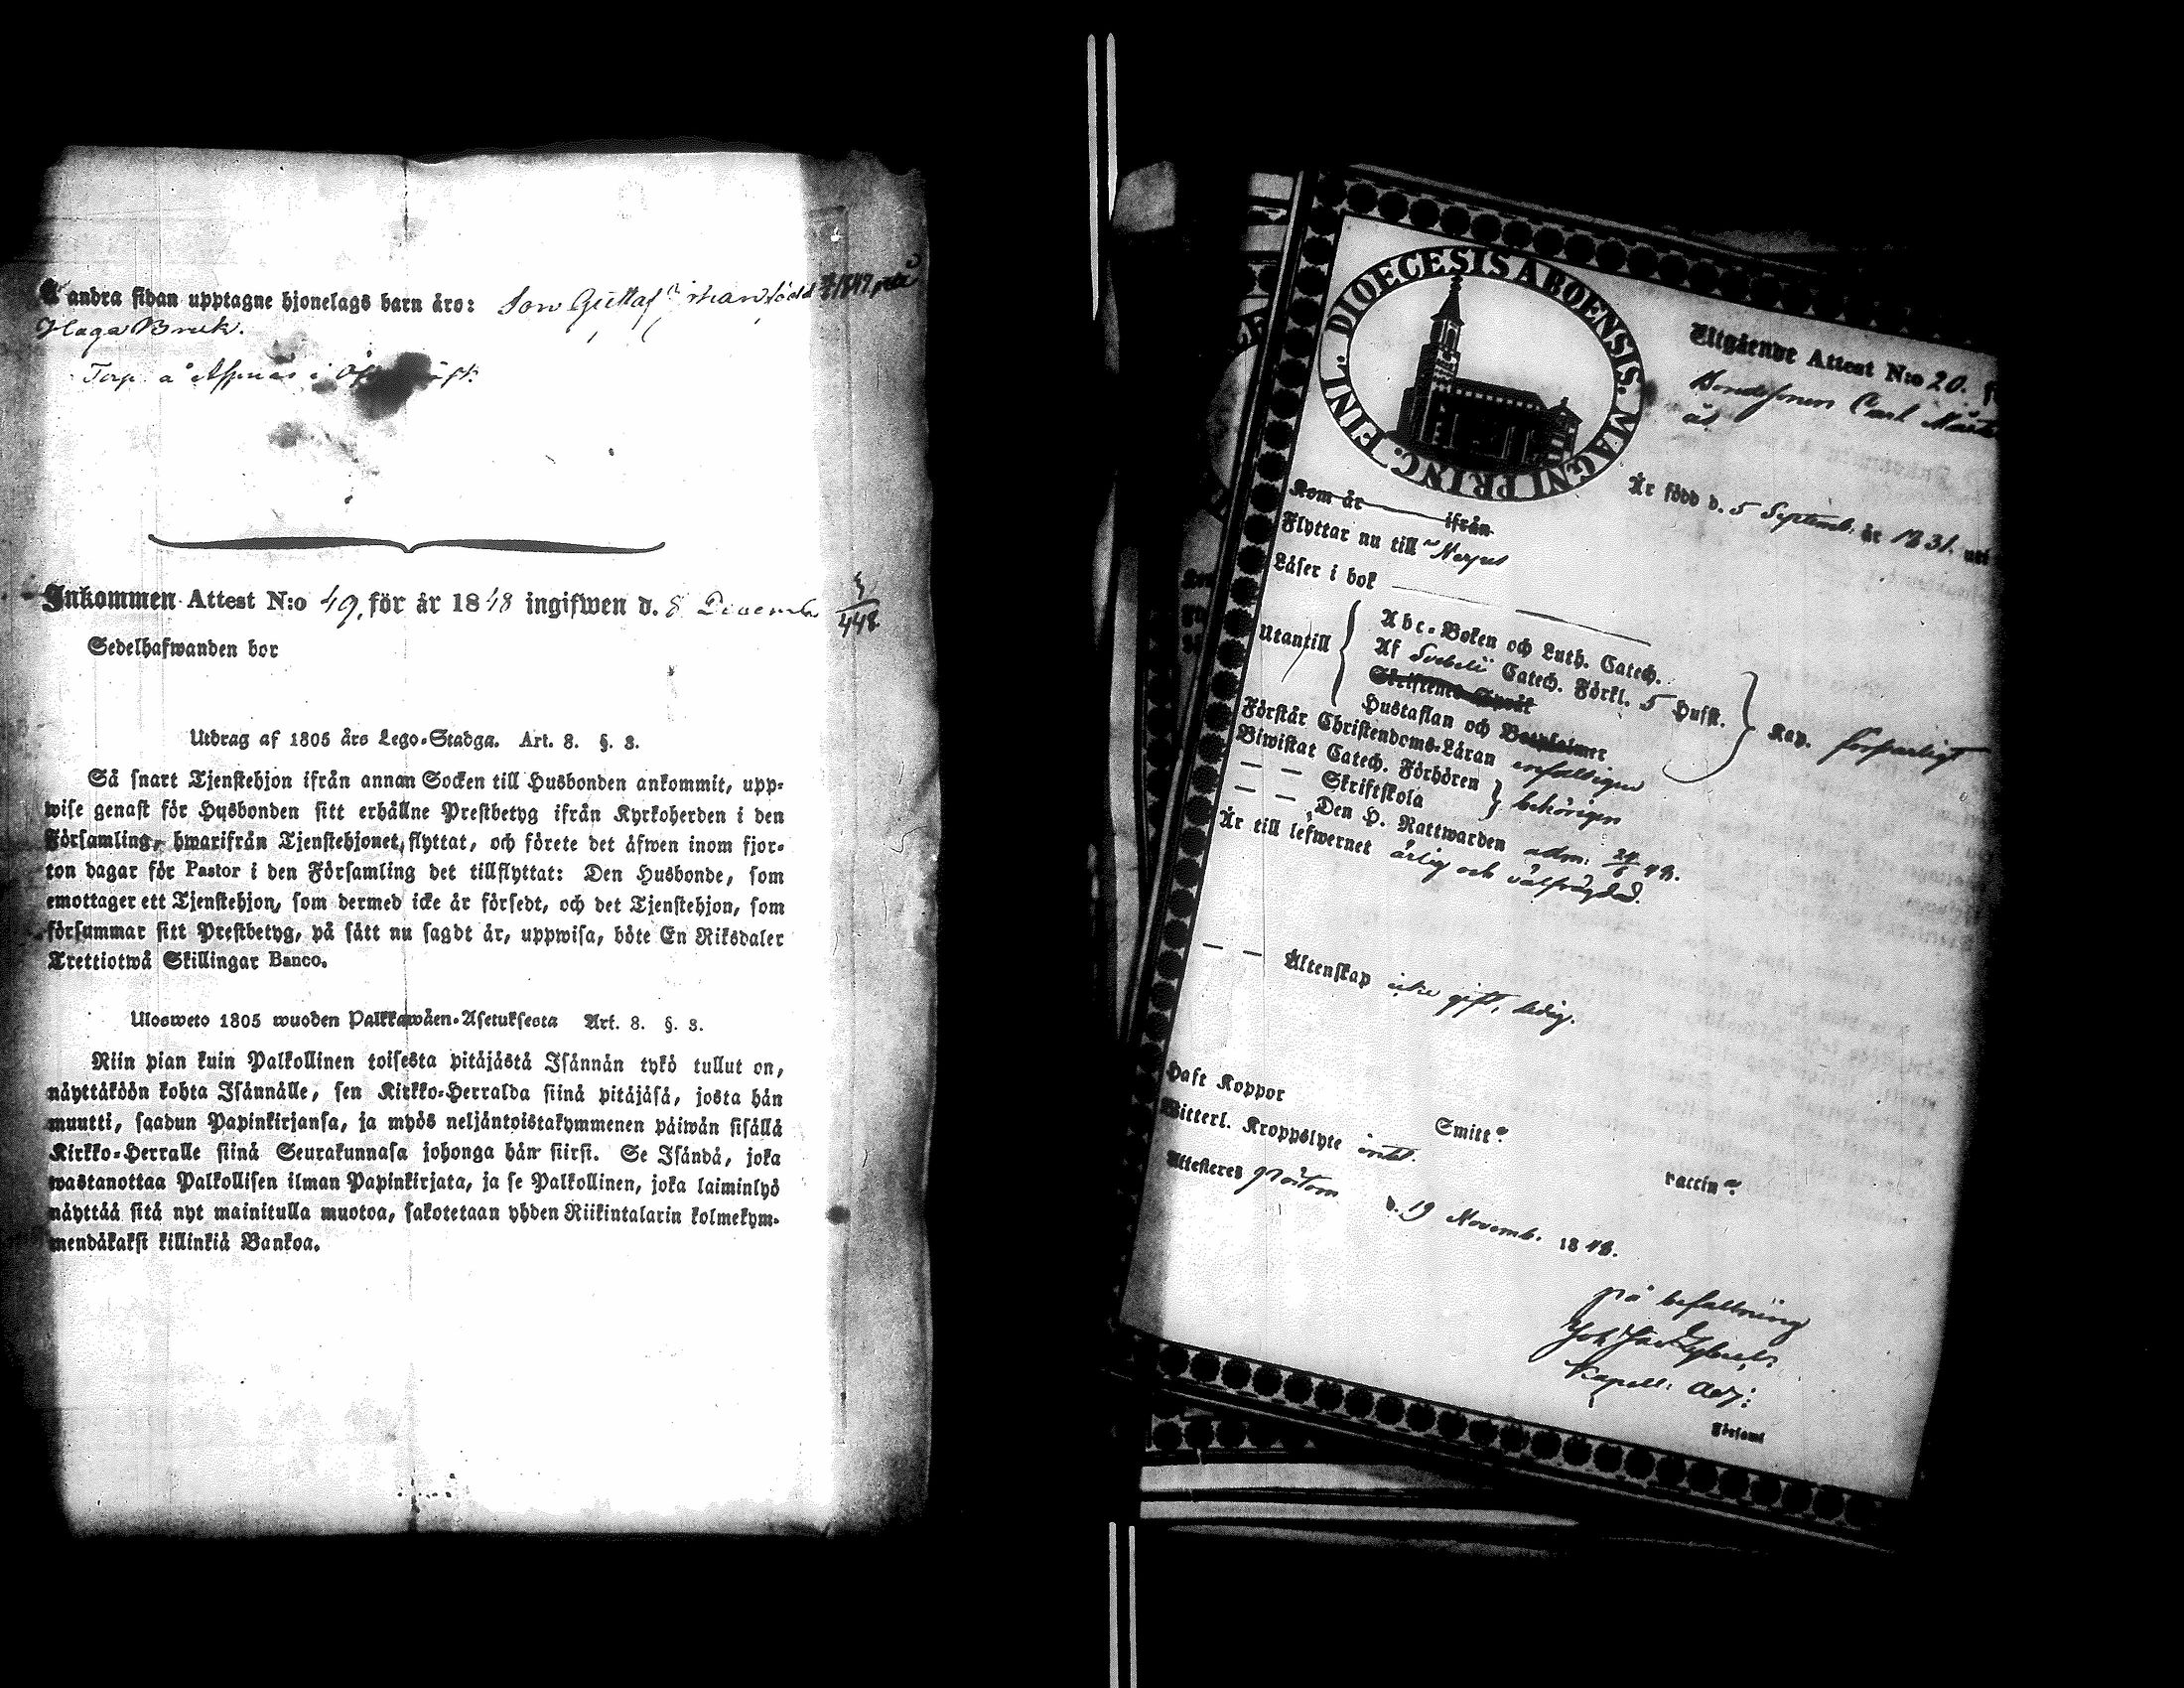 å andra sidan upptagne hjonelags barn äro: Son Gustaf född 1847 på
Haga Bruk.
Torp å Aspnäs i
Inkommen Attest N:o 49, för år 1848 ingifwen d. 8 December
448
Sedelhafwanden bor
Utdrag af 1805 års Lego-Stadga. Art. 8. §. 3.
Så snart Tjenstehjon ifrån annan Socken till Husbonden ankommit, upp-
wise genast för Husbonden sitt erhållne Prestbetyg ifrån Kyrkoherden i den
Församling, hwarifrån Tjenstehjonet flyttat, och förete det äfwen inom fjor-
ton dagar för Pastor i den Församling det tillflyttat: Den Husbonde, som
emottager ett Tjenstehjon, som dermed icke är försedt, och det Tjenstehjon, som
försummar sitt Prestbetyg, på sätt nu sagdt är, uppwisa, böte En Riksdaler
Trettiotwå Skillingar Banco.
Ulosweto 1805 wuoden Palkkawäen-Asetuksesta Art. 8. §. 3.
Niin pian kuin Palkollinen toisesta pitäjästä Isännän tykö tullut on,
näyttäköön kohta Isännälle, sen Kirkko-Herralda siinä pitäjäsä, josta hän
muutti, saadun Papinkirjansa, ja myös neljäntoistakymmenen päiwän sisällä
Kirkko-Herralle siinä Seurakunnasa johonga hän siirsi. Se Isändä, joka
wastanottaa Palkollisen ilman Papinkirjata, ja se Palkollinen, joka laiminlyö
näyttää sitä nyt mainitulla muotoa, sakotetaan yhden Riikintalarin kolmekym-
mendäkaksi killinkiä Bankoa.
DIOECESIS ABOENSIS. MAGNI PRINC. FINL.
Utgående Attest N:o 20.
Bondesonen Carl
Är född d. 5 Septemb. år 1831. uti
Kom år ifrån
Flyttar nu till Nerpes
Läser i bok
Utantill
Abc-Boken och Luth. Catech.
Af Svebelii Catech. Förkl. 5 Hufst.
Skriftenes Språk
Hustaflan och Botpsalmer
Kap. försvarligt
Förstår Christendoms-Läran enfaldigen
Biwistat Catech. Förhören
— — Skriftskola
behörigen
— — Den H. Nattwarden adm: 24/6 48.
Är till lefwernet ärlig och välfrägdad.
— — Äktenskap icke gift, ledig.
Haft Koppor Smitt vaccin
Witterl. Kroppslyte intet.
Attesteres d. 19 Novemb. 1848.
på befallning
Kapell: Adj:
Församl